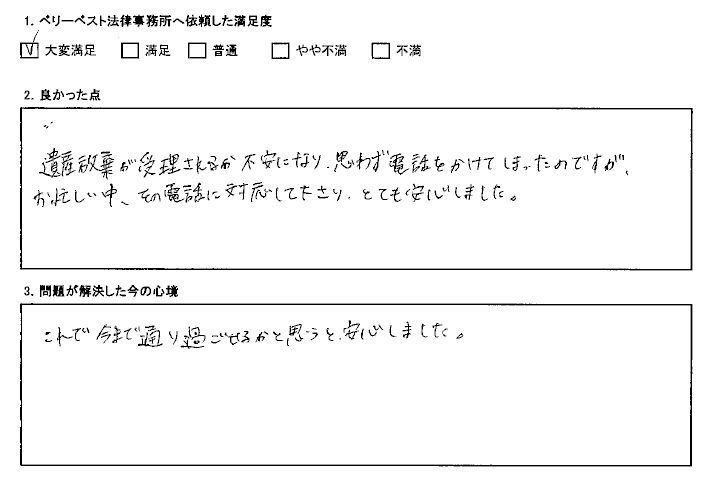 1．ベリーベスト法律事務所へ依頼した満足度
☑ 大変満足 □ 満足 □ 普通 □ やや不満 □ 不満
2．良かった点
遺産放棄が受理されるか不安になり、思わず電話をかけてしまったのですが、
お忙しい中、その電話に対応して下さり、とても安心しました。
3．問題が解決した今の心境
これで今まで通り過ごせるかと思うと、安心しました。